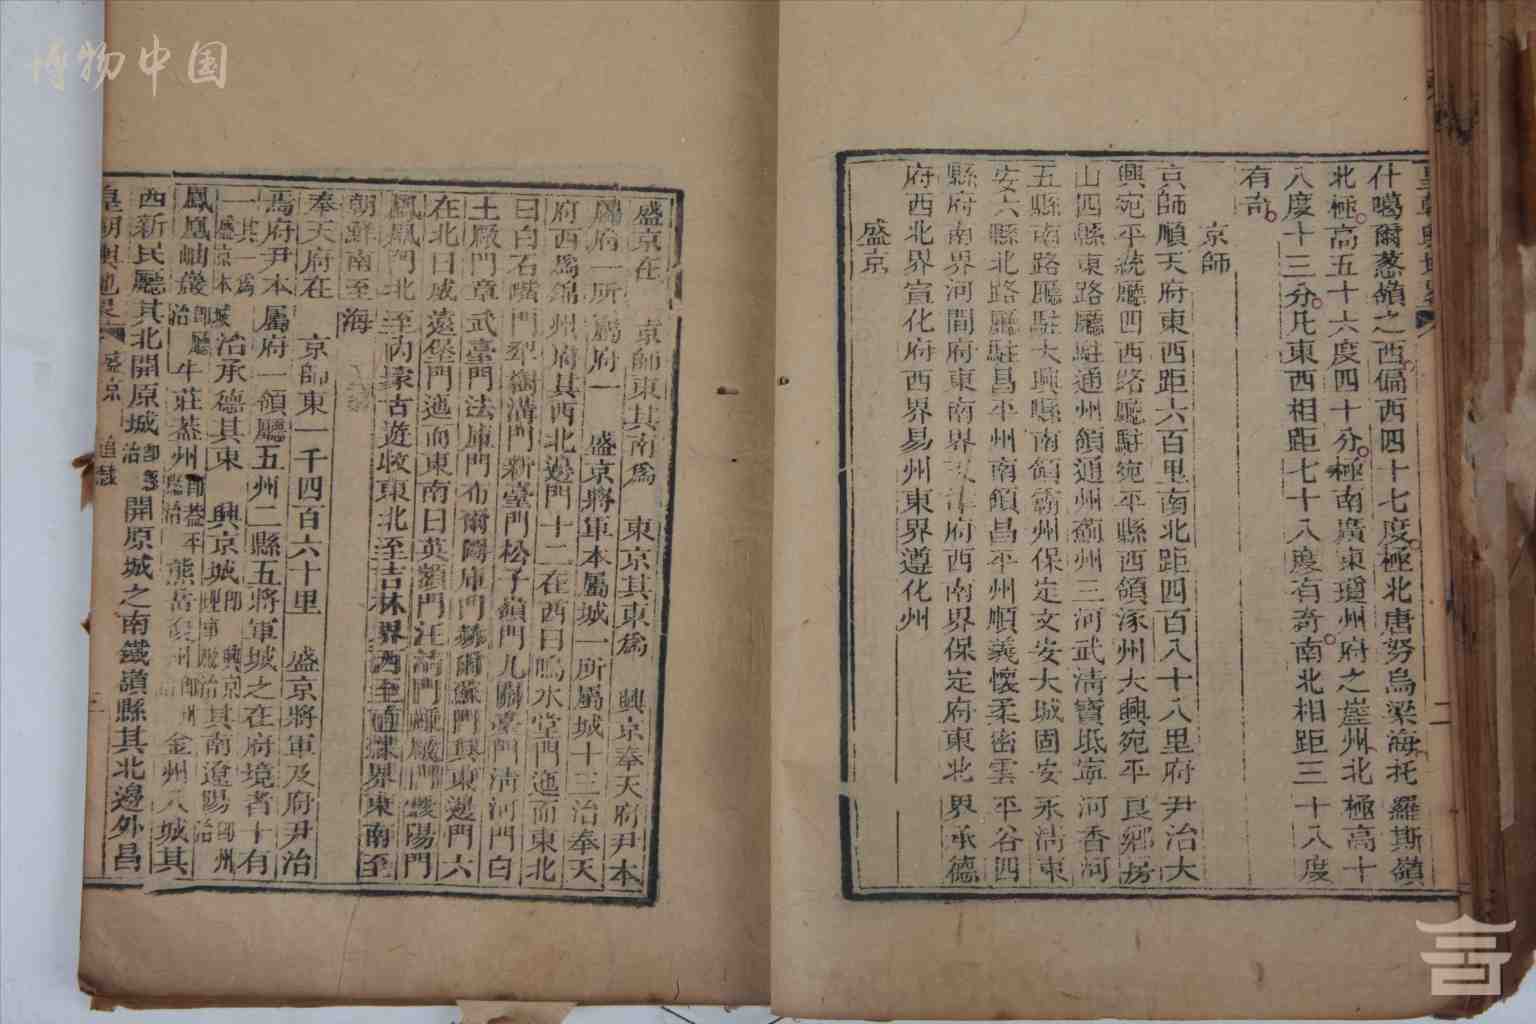 博物中国
什噶爾蔥嶺之西偏西四十七度極北唐努烏梁海托羅斯嶺
北極高五十六度四十分極南廣東瓊州府之崖州北極高十
八度十三分凡東西相距七十八度有奇南北相距三十八度
有奇
京師
京師順天府東西距六百里南北距四百八十八里府尹治大
興宛平統廳四西路廳駐宛平縣西領涿州大興宛平良鄉房
山四縣東路廳駐通州領通州薊州三河武清寶坻寧河香河
五縣南路廳駐大興縣南領霸州保定文安大城固安永清東
安六縣北路廳駐昌平州南領昌平州順義懷柔密雲平谷四
縣府南界河間府東南界天津府西南界保定府東北界承德
府西北界宣化府西界易州東界遵化州
盛京
二
盛京在 京師東其南為 東京其東為 興京奉天府尹本
屬府一所屬府一 盛京將軍本屬城一所屬城十三治奉天
府西為錦州府其西北邊門十二在西曰鳴水堂門迤而東北
曰白石嘴門梨樹溝門新臺門松子嶺門九關臺門清河門白
土廠門章武臺門法庫門布爾圖庫門赫爾蘇門其東邊門六
在北曰威遠堡門迤而東南曰英額門汪清門鹻廠門靉陽門
鳳凰門北至內蒙古遊牧東北至吉林界西至直隸界東南至
朝鮮南至海
奉天府在 京師東一千四百六十里 盛京將軍及府尹治
焉府尹本屬府一領廳五州二縣五將軍城之在府境者十有
一其一為盛京本城治承德其東 興京城即理事廳治興京其南遼陽即州治
鳳凰岫巖即廳治牛莊蓋州即蓋平縣治熊岳復州即州治金州八城其
西新民廳其北開原城即縣治開原城之南鐵嶺縣其北邊外昌
皇朝輿地 盛京 直隸
三